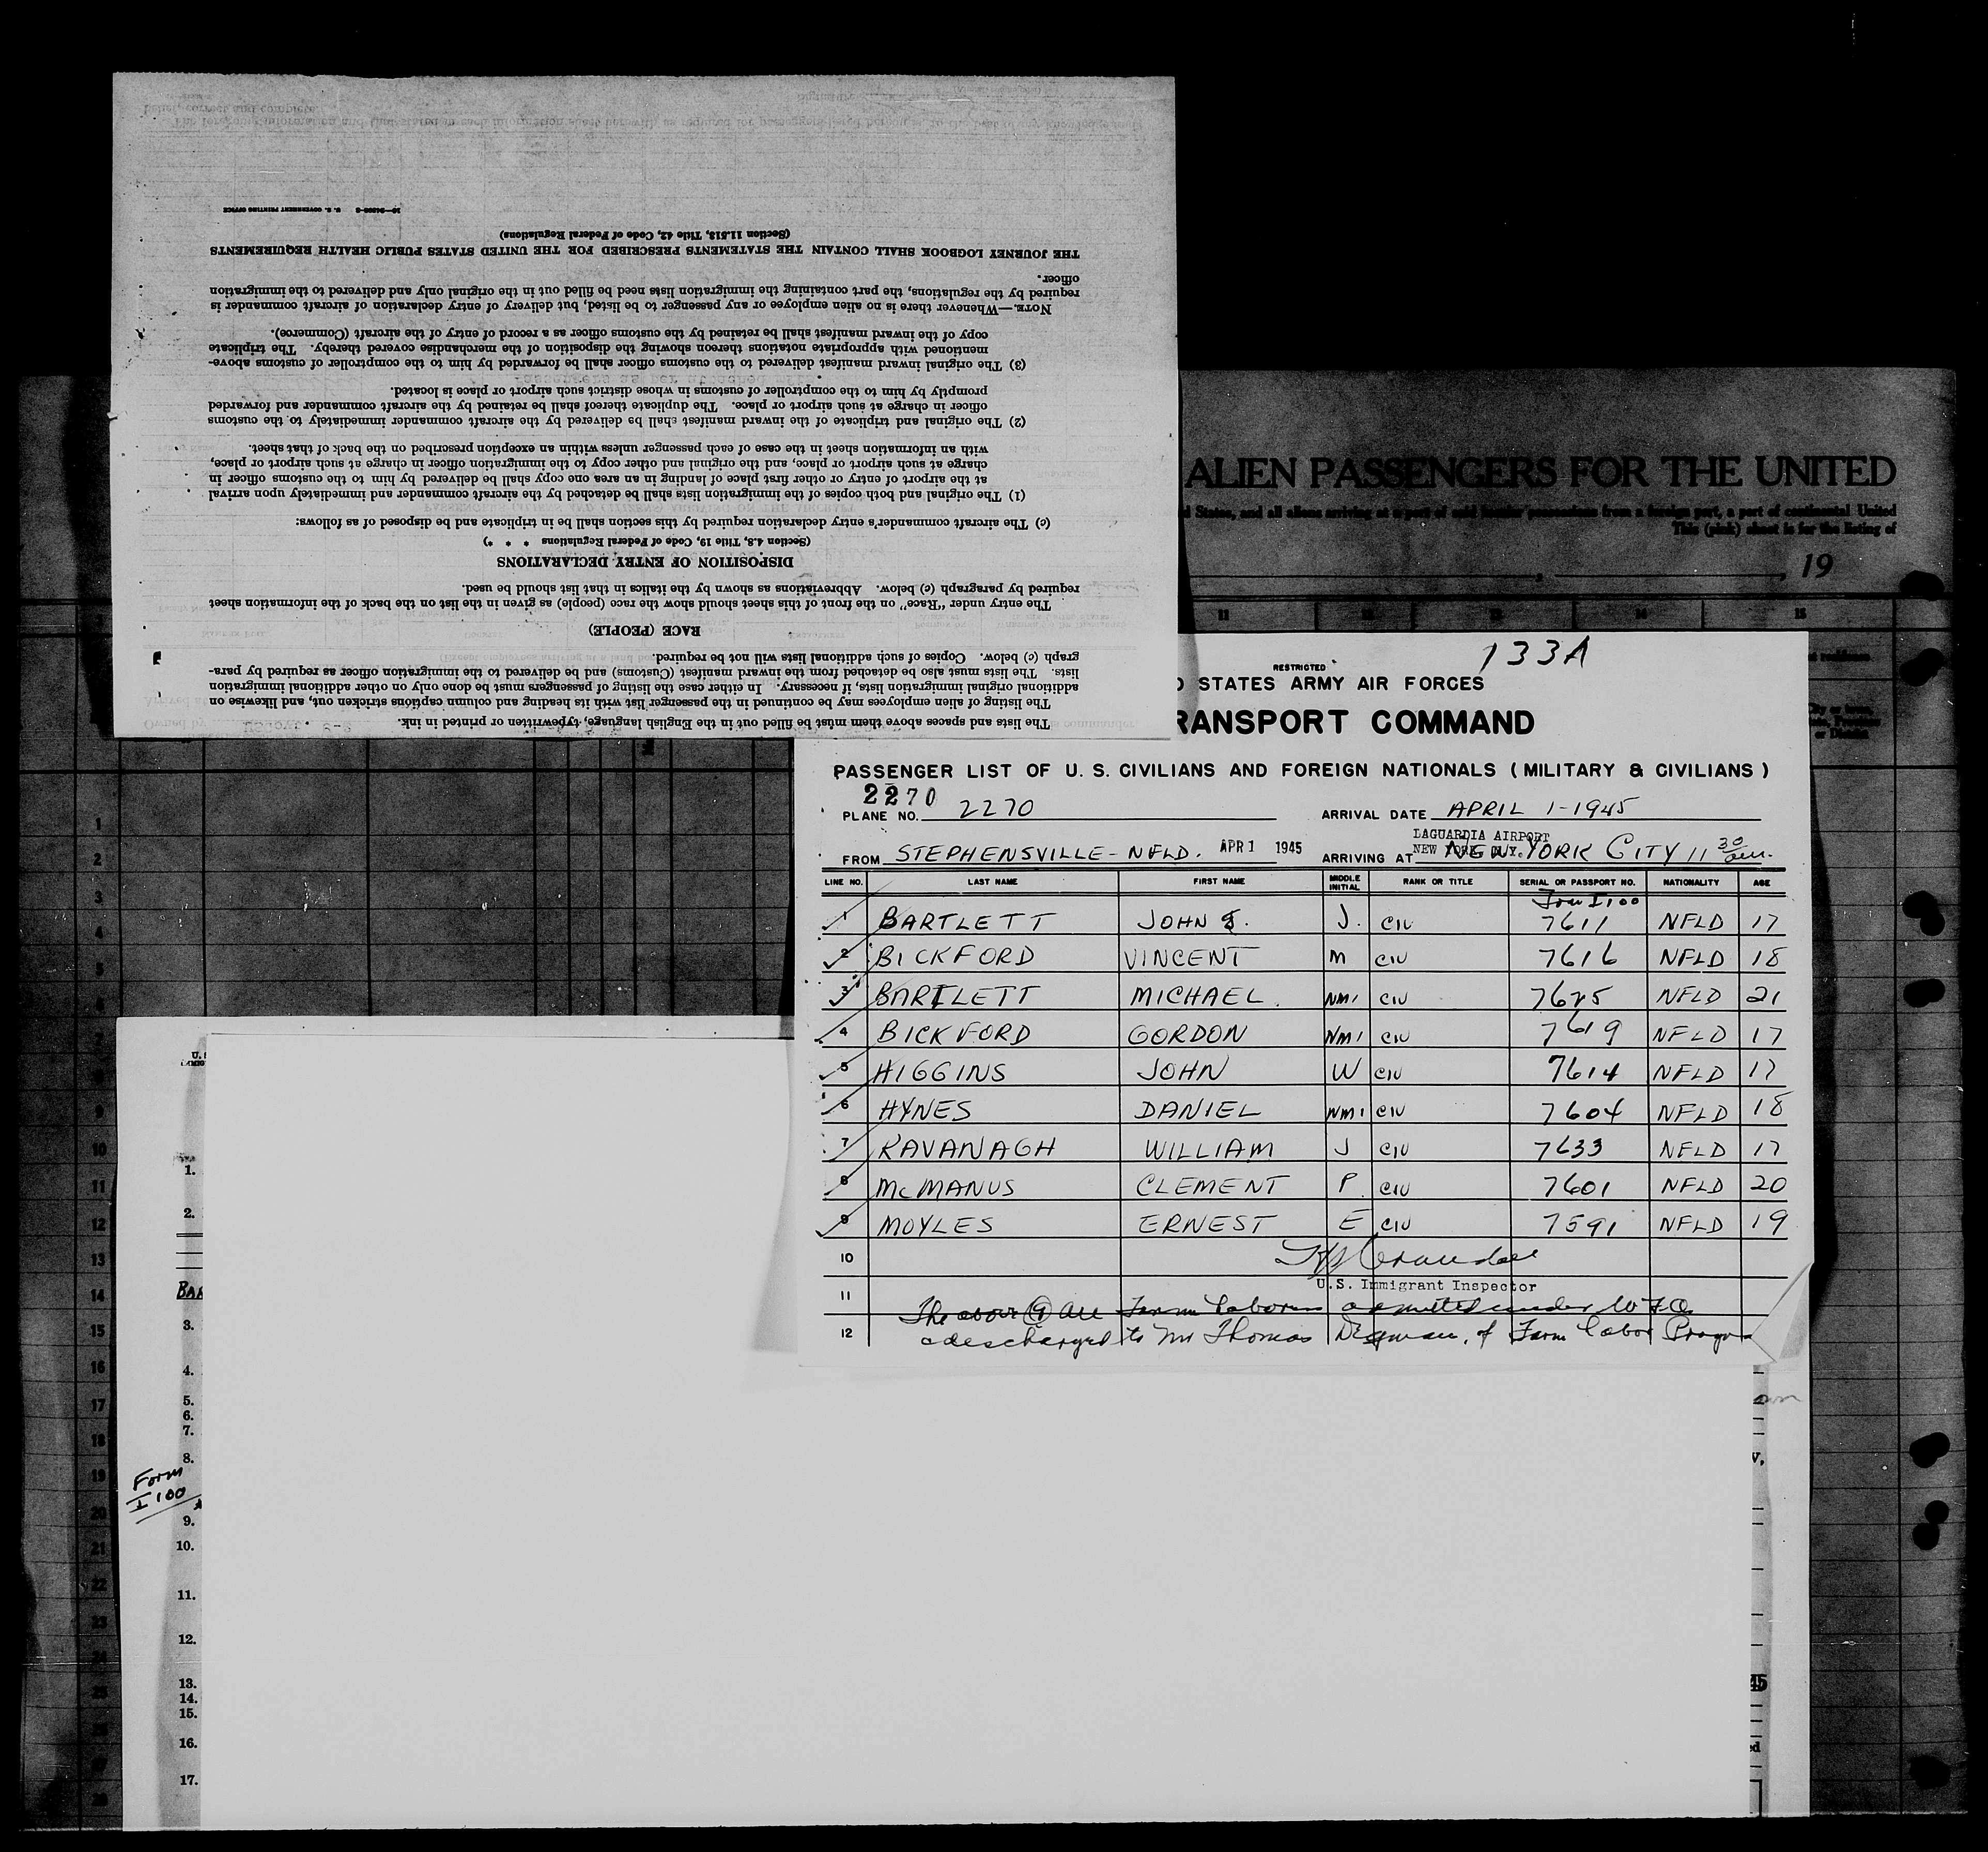 The lists and spaces above them must be filled out in the English language, typewritten or printed in ink.
The listing of alien employees may be continued in the passenger list with its heading and column captions stricken out, and likewise on
additional original immigration lists, if necessary. In either case the listing of passengers must be done only on other additional immigration
lists. The lists must also be detached from the inward manifest (Customs) and be delivered to the immigration officer as required by para-
graph (c) below. Copies of such additional lists will not be required.
RACE (PEOPLE)
The entry under "Race" on the front of this sheet should show the race (people) as given in the list on the back of the information sheet
required by paragraph (c) below. Abbreviations as shown by the italics in that list should be used.
DISPOSITION OF ENTRY DECLARATIONS
(Section 4.8, Title 19, Code of Federal Regulations * * *)
(c) The aircraft commander's entry declaration required by this section shall be in triplicate and be disposed of as follows:
(1) The original and both copies of the immigration lists shall be detached by the aircraft commander and immediately upon arrival
at the airport of entry or other first place of landing in an area one copy shall be delivered by him to the customs officer in
charge at such airport or place, and the original and other copy to the immigration officer in charge at such airport or place,
with an information sheet in the case of each passenger unless within an exception prescribed on the back of that sheet.
(2) The original and triplicate of the inward manifest shall be delivered by the aircraft commander immediately to the customs
officer in charge at such airport or place. The duplicate thereof shall be retained by the aircraft commander and forwarded
promptly by him to the comptroller of customs in whose district such airport or place is located.
(3) The original inward manifest delivered to the customs officer shall be forwarded by him to the comptroller of customs above-
mentioned with appropriate notations thereon showing the disposition of the merchandise covered thereby. The triplicate
copy of the inward manifest shall be retained by the customs officer as a record of entry of the aircraft (Commerce).
NOTE.—Whenever there is no alien employee or any passenger to be listed, but delivery of entry declaration of aircraft commander is
required by the regulations, the part containing the immigration lists need be filled out in the original only and delivered to the immigration
officer.
THE JOURNEY LOGBOOK SHALL CONTAIN THE STATEMENTS PRESCRIBED FOR THE UNITED STATES PUBLIC HEALTH REQUIREMENTS
(Section 11.513, Title 42, Code of Federal Regulations)
U. S. GOVERNMENT PRINTING OFFICE
ALIEN PASSENGERS FOR THE UNITED
States, and all aliens arriving at a port of said from a foreign port, a port of continental United
This (pink) sheet is for the listing of
, 19
11 12 13 14 15
133A
RESTRICTED
STATES ARMY AIR FORCES
RANSPORT COMMAND
PASSENGER LIST OF U. S. CIVILIANS AND FOREIGN NATIONALS ( MILITARY & CIVILIANS )
2270
PLANE NO. 2270 ARRIVAL DATE APRIL 1-1945
LAGUARDIA AIRPORT
FROM STEPHENSVILLE - NFLD. APR 1 1945 ARRIVING AT NEW YORK CITY 11 30 am.
LINE NO. LAST NAME FIRST NAME MIDDLE INITIAL RANK OR TITLE SERIAL OR PASSPORT NO. NATIONALITY AGE
Form I 100
1 BARTLETT JOHN J. CIV 7611 NFLD 17
2 BICKFORD VINCENT M CIV 7616 NFLD 18
3 BARTLETT MICHAEL NMI CIV 7625 NFLD 21
4 BICKFORD GORDON NMI CIV 7619 NFLD 17
5 HIGGINS JOHN W CIV 7614 NFLD 17
6 HYNES DANIEL NMI CIV 7604 NFLD 18
7 KAVANAGH WILLIAM J CIV 7633 NFLD 17
8 McMANUS CLEMENT P. CIV 7601 NFLD 20
9 MOYLES ERNEST E CIV 7591 NFLD 19
10
U.S. Immigrant Inspector
11 The above (9) are Farm Laborers admitted under W F O
12 & discharged to Mr Thomas of Farm Labor Program
1
2
3
4
5
9
10
11
12
13
14
15
16
17
18
19
20
21
22
23
1.
2.
BAR
3.
4.
5.
6.
7.
8.
Form
I 100
9.
10.
11.
12.
13.
14.
15.
16.
17.